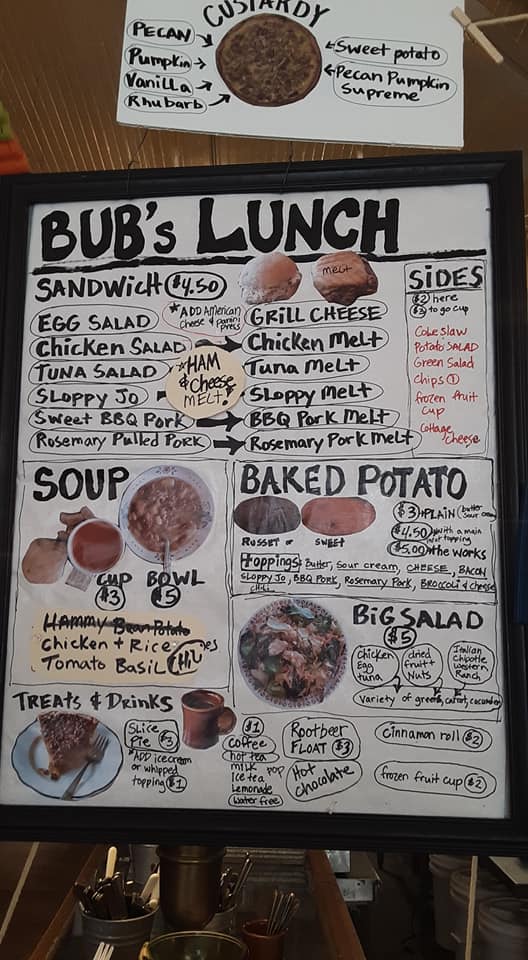 CUSTARDY
PECAN
Pumpkin
Vanilla
Rhubarb
Sweet potato
Pecan Pumpkin
Supreme
BUB's LUNCH
SANDWicH $4.50
*ADD American
Cheese & panini
press
EGG SALAD
Chicken SALAD
TUNA SALAD
SLOPPY JO
Sweet BBQ Pork
Rosemary Pulled PORK
*HAM
& Cheese
MELT!
MELT
GRiLL CHEESE
Chicken Melt
Tuna Melt
Sloppy Melt
BBQ Pork Melt
Rosemary Pork Melt
SiDES
$2 here
$3 to go cup
Coleslaw
Potato SALAD
Green Salad
Chips ①
frozen fruit
cup
Cottage
Cheese
SOUP
CUP BOWL
$3 $5
HAMMY Bean Potato
Chicken + Rice
Tomato Basil
BAKED POTATO
RUSSET or SWEET
$3 PLAIN (butter
sour cream)
$4.50 with a main
topping
$5.00 the works
Toppings: Butter, Sour cream, CHEESE, BACON
SLoppy Jo, BBQ Pork, Rosemary Pork, BROCCOLi & cheese
CHiLi
BiG SALAD
$5
Chicken
Egg
tuna
dried
fruit +
Nuts
Italian
Chipotle
western
Ranch
Variety of greens, carrot, cucumber
TREATS & DRiNKS
SLice
Pie $3
*ADD icecream
or whipped
topping $1
$1
coffee
hot tea
milk pop
Ice tea
Lemonade
Water free
Rootbeer
FLOAT $3
Hot
chocolate
Cinnamon roll $2
frozen fruit cup $2